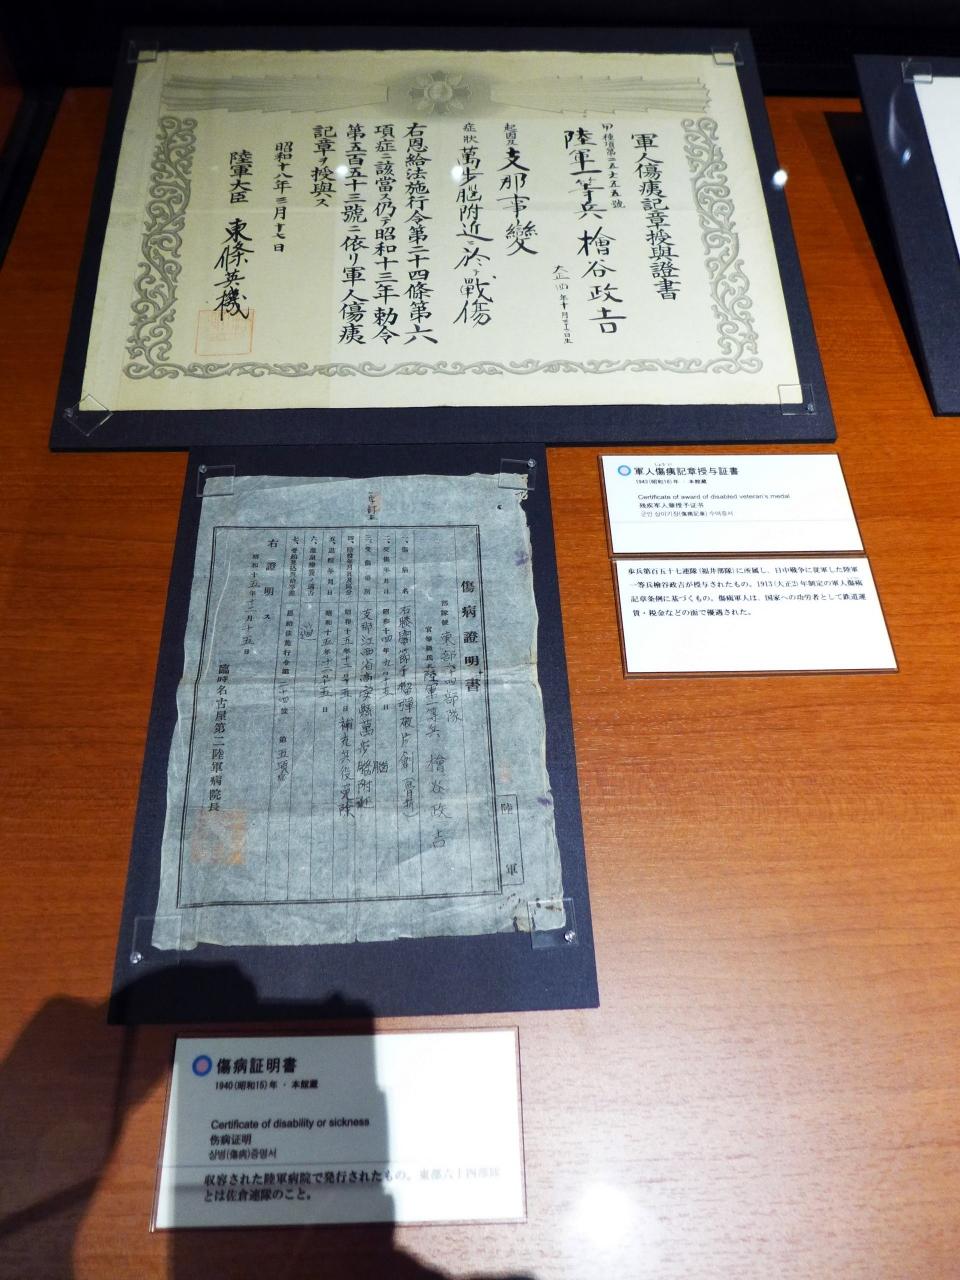 軍人傷痍記章授與證書
陸軍一等兵 檜谷政吉
大正四年十月三十日生
起因 支那事變
症狀 萬步𦜝附近ニ於テ戰傷
右恩給法施行令第二十四條第六
項症ニ該當ス仍テ昭和十三年勅令
第五百五十三號ニ依リ軍人傷痍
記章ヲ授與ス
昭和十八年三月十七日
陸軍大臣 東條英機
軍人傷痍記章授与証書
1943(昭和18)年 ・ 本館蔵
Certificate of award of disabled veteran's medal
残疾军人徽授予证书
군인 상이기장(傷痍記章) 수여증서
歩兵第百五十七連隊(福井部隊)に所属し、日中戦争に従軍した陸軍
一等兵檜谷政吉が授与されたもの。1913(大正2)年制定の軍人傷痍
記章条例に基づくもの。傷痍軍人は、国家への功労者として鉄道運
賃・税金などの面で優遇された。
傷病證明書
部隊號 東部六四部隊
陸軍一等兵 檜谷政吉
一、傷病名
二、受傷年月日 昭和十四年九月
三、受傷場所 支那江西省高安縣萬步
昭和十五年十二月十五日
五、退院年月日 昭和十五年十二月十五日
恩給法施行令第二十四條 第五項症
右證明ス
昭和十五年十二月十五日
臨時名古屋第二陸軍病院長
陸軍
傷病証明書
1940(昭和15)年 ・ 本館蔵
Certificate of disability or sickness
伤病证明
상병(傷病)증명서
収容された陸軍病院で発行されたもの。東部六十四部隊
とは佐倉連隊のこと。